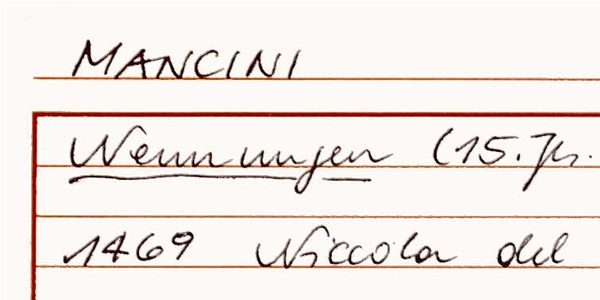 MANCINI
Nennungen (15. Jh.
1469 Niccola del